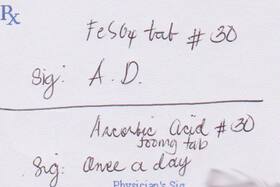 Rx
FeSO4 tab # 30
Sig: A.D.
Ascorbic Acid # 30
500mg tab
Sig: Once a day
Physician's Sig